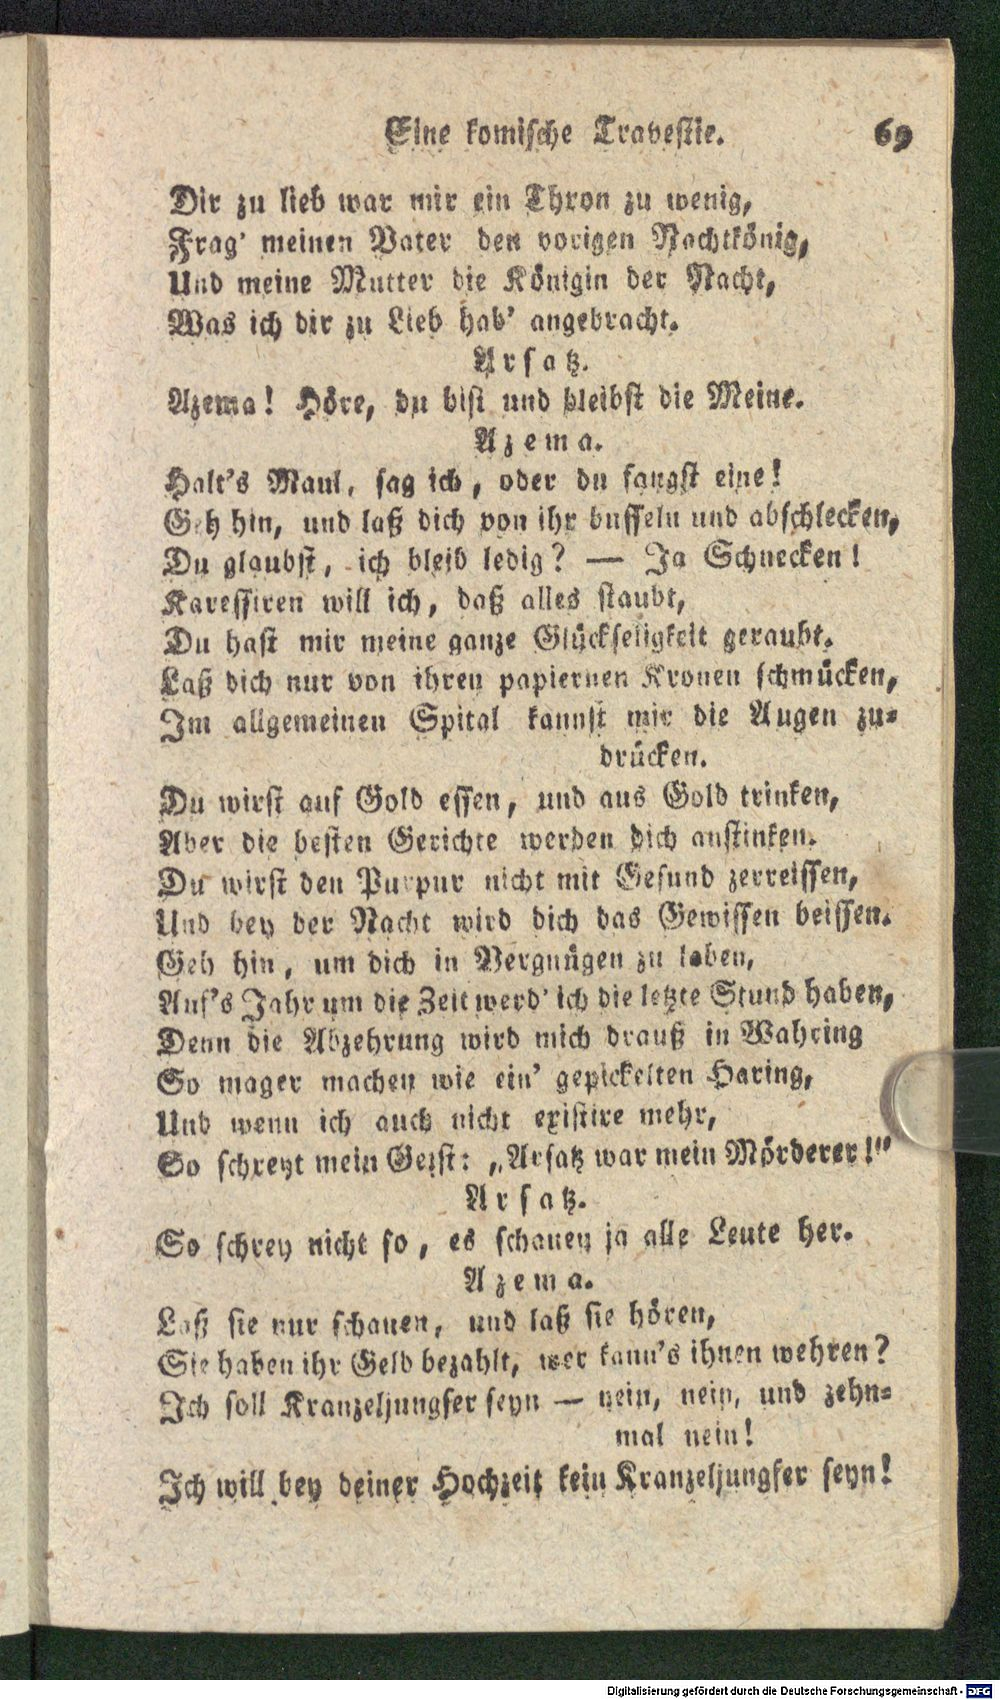 Eine komische Travestie. 69
Dir zu lieb war mir ein Thron zu wenig,
Frag' meinen Vater den vorigen Nachtkönig,
Und meine Mutter die Königin der Nacht,
Was ich dir zu Lieb hab' angebracht.
Arsatz.
Azema! Höre, du bist und bleibst die Meine.
Azema.
Halt's Maul, sag ich, oder du fangst eine!
Geh hin, und laß dich von ihr busseln und abschlecken,
Du glaubst, ich bleib ledig? — Ja Schnecken!
Karessiren will ich, daß alles staubt,
Du hast mir meine ganze Glückseligkeit geraubt.
Laß dich nur von ihren papiernen Kronen schmücken,
Im allgemeinen Spital kannst mir die Augen zu-
drücken.
Du wirst auf Gold essen, und aus Gold trinken,
Aber die besten Gerichte werden dich anstinken.
Du wirst den Purpur nicht mit Gesund zerreissen,
Und bey der Nacht wird dich das Gewissen beissen.
Geh hin, um dich in Vergnügen zu laben,
Auf's Jahr um die Zeit werd' ich die letzte Stund haben,
Denn die Abzehrung wird mich drauß in Wahring
So mager machen wie ein' gepickelten Haring,
Und wenn ich auch nicht existire mehr,
So schreyt mein Geist: „Arsatz war mein Mörderer!"
Arsatz.
So schrey nicht so, es schauen ja alle Leute her.
Azema.
Laß sie nur schauen, und laß sie hören,
Sie haben ihr Geld bezahlt, wer kann's ihnen wehren?
Ich soll Kranzeljungfer seyn — nein, nein, und zehn-
mal nein!
Ich will bey deiner Hochzeit kein Kranzeljungfer seyn!
Digitalisierung gefördert durch die Deutsche Forschungsgemeinschaft - DFG